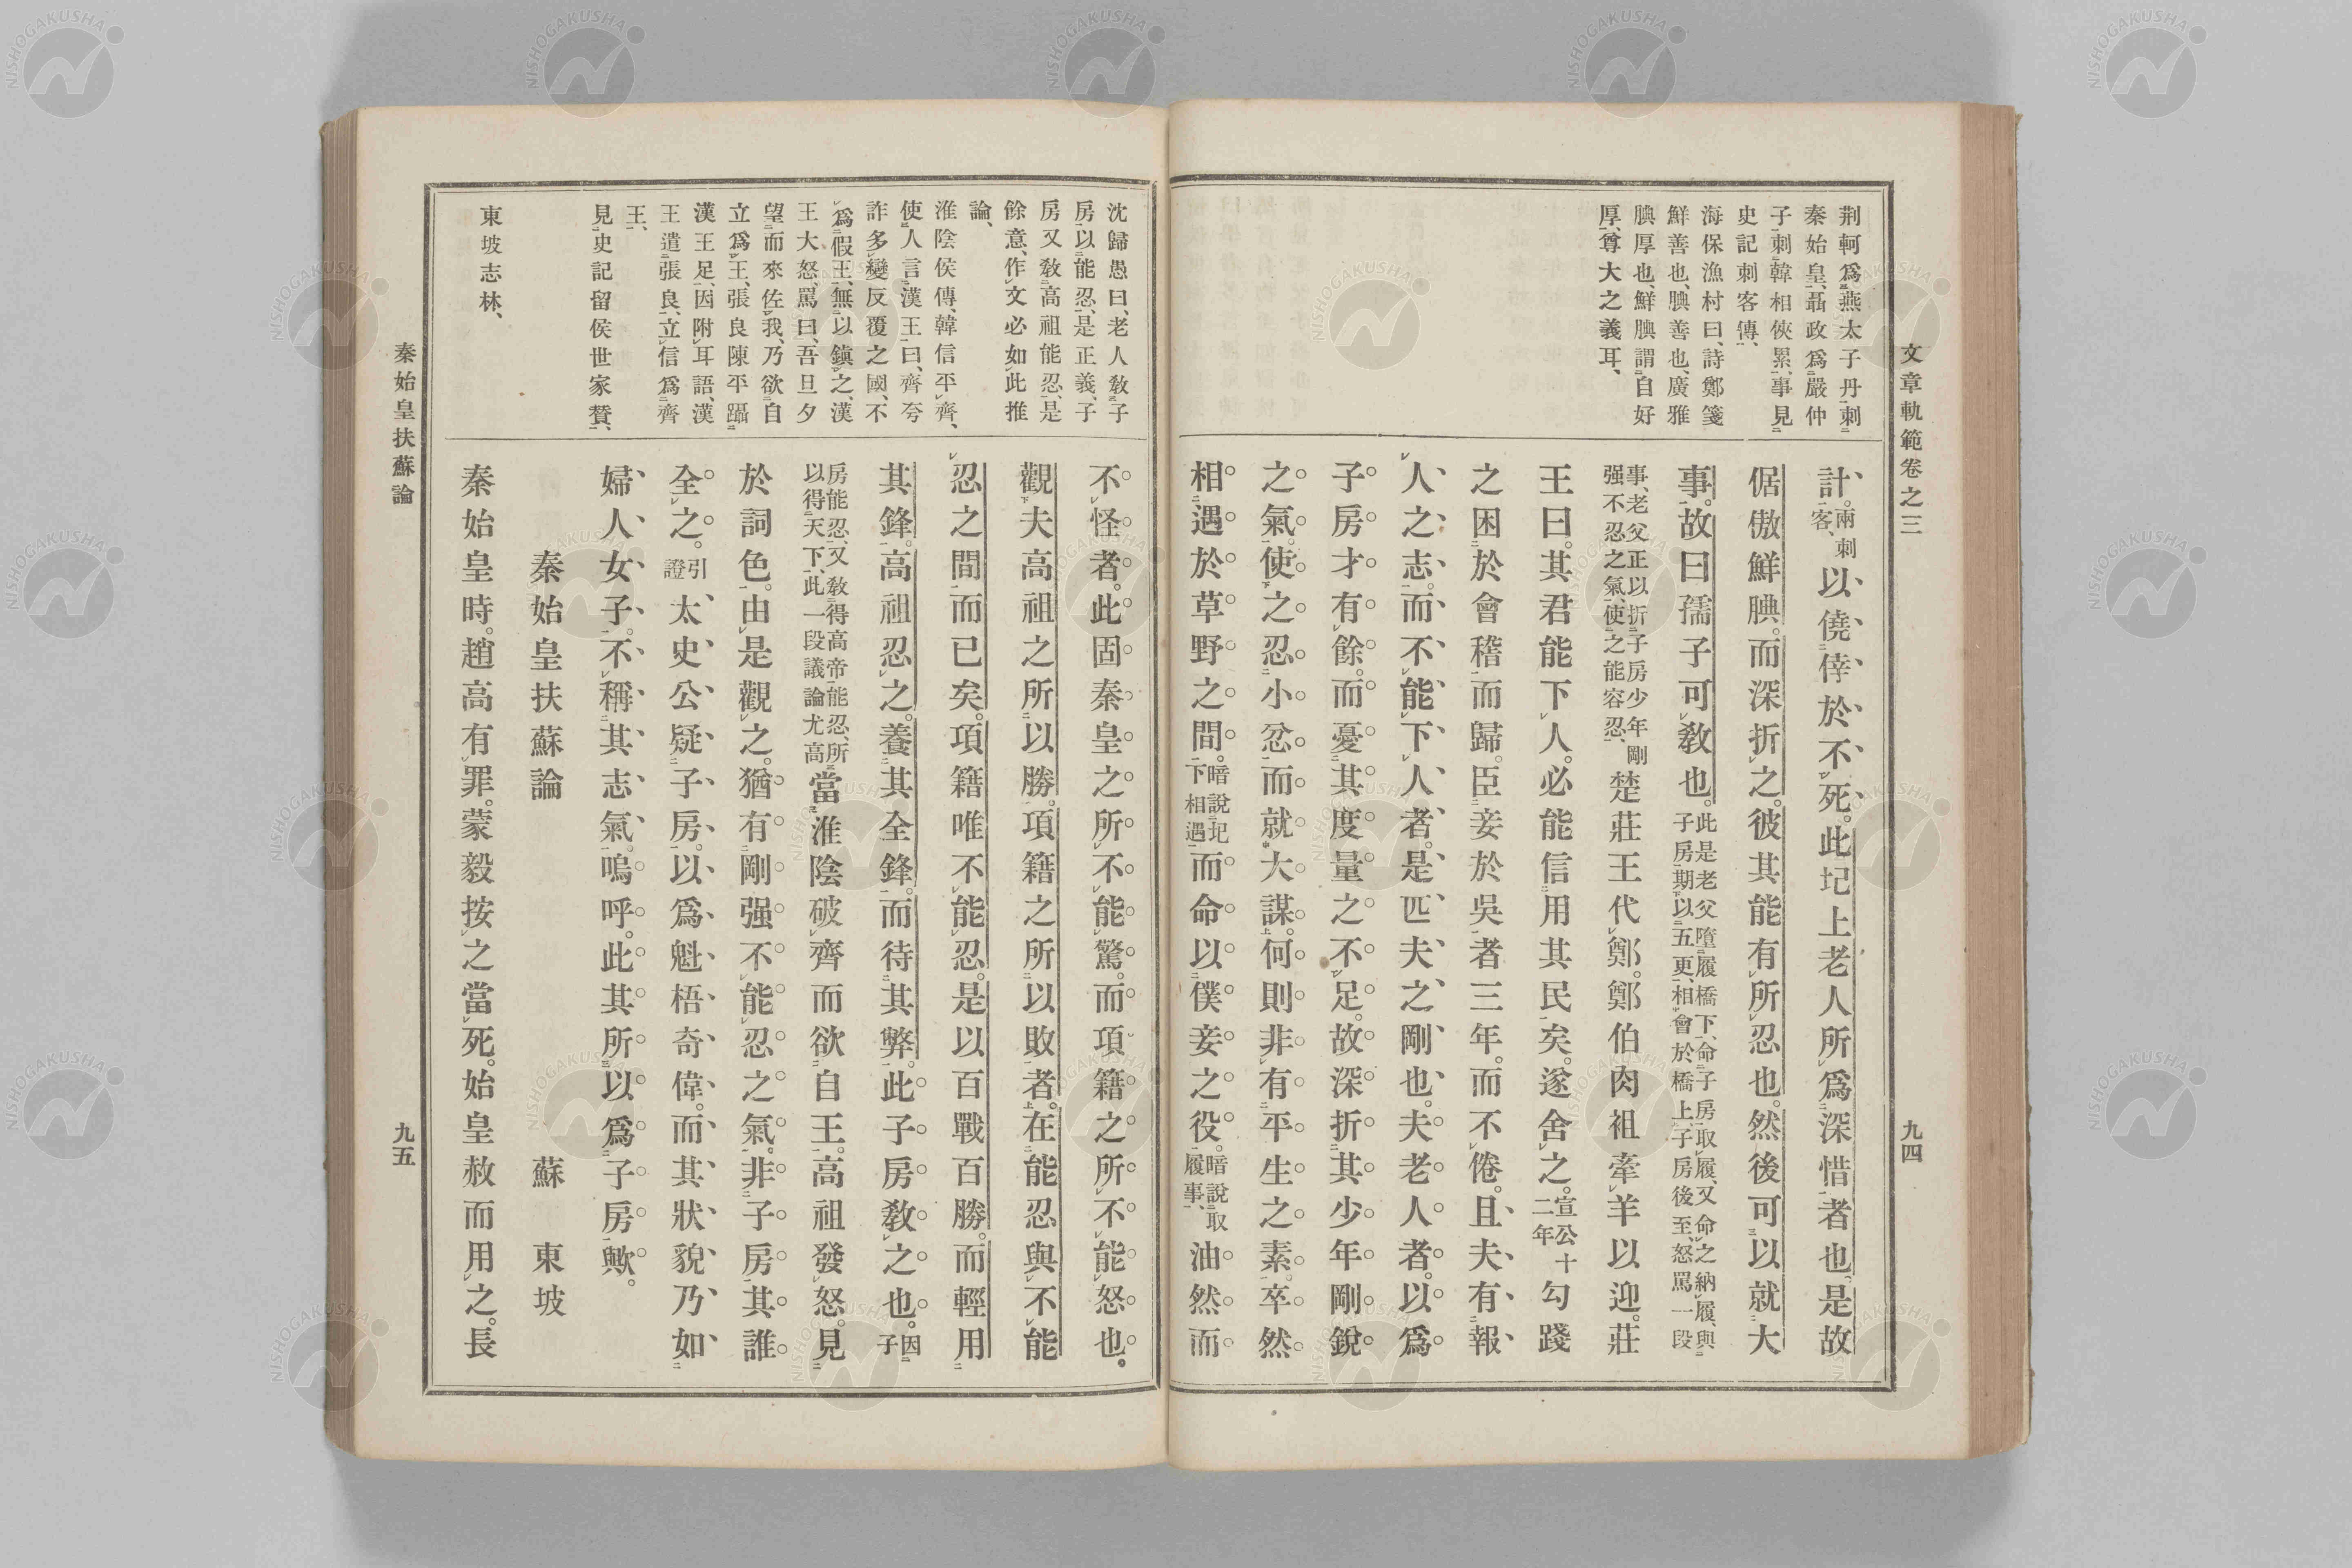 文章軌範卷之三
九四
荆軻爲燕太子丹刺
秦始皇、聶政爲嚴仲
子刺韓相俠累、事見
史記刺客傳、
海保漁村曰、詩鄭箋
鮮善也、腆善也、廣雅
腆厚也、鮮腆謂自好
厚、尊大之義耳、
計。兩刺客、以僥倖於不死。此圯上老人所爲深惜者也。是故
倨傲鮮腆。而深折之。彼其能有所忍也。然後可以就大
事。故曰孺子可敎也。此是老父墮履橋下、命子房取履、又命之納履、與子房期以五更、相會於橋上、子房後至、怒罵一段
事、老父正以折子房少年剛强不忍之氣、使之能容忍、楚莊王代鄭。鄭伯肉袒牽羊以迎。莊
王曰。其君能下人。必能信用其民矣。遂舍之。宣公十二年勾踐
之困於會稽而歸。臣妾於吳者三年。而不倦。且夫有報
人之志。而不能下人者。是匹夫之剛也。夫老人者。以爲
子房才有餘。而憂其度量之不足。故深折其少年剛銳
之氣。使之忍小忿而就大謀。何則非有平生之素。卒然
相遇於草野之間。暗說圯下相遇而命以僕妾之役。暗說取履事、油然而
沈歸愚曰、老人敎子
房以能忍、是正義、子
房又敎高祖能忍、是
餘意、作文必如此推
論、
淮陰侯傳、韓信平齊、
使人言漢王曰、齊夸
詐多變反覆之國、不
爲假王、無以鎭之、漢
王大怒、罵曰、吾旦夕
望而來佐我、乃欲自
立爲王、張良陳平躡
漢王足、因附耳語、漢
王遣張良、立信爲齊
王、
見史記留侯世家贊、
東坡志林、
不怪者。此固秦皇之所不能驚。而項籍之所不能怒也。
觀夫高祖之所以勝。項籍之所以敗者。在能忍與不能
忍之間而已矣。項籍唯不能忍。是以百戰百勝。而輕用
其鋒。高祖忍之。養其全鋒。而待其弊。此子房敎之也。因子
房能忍、又敎得高帝能忍、所以得天下、此一段議論尤高當淮陰破齊而欲自王。高祖發怒。見
於詞色。由是觀之。猶有剛强不能忍之氣。非子房其誰
全之。引證太史公疑子房。以爲魁梧奇偉。而其狀貌乃如
婦人女子。不稱其志氣。嗚呼。此其所以爲子房歟。
秦始皇扶蘇論　蘇東坡
秦始皇時。趙高有罪。蒙毅按之當死。始皇赦而用之。長
秦始皇扶蘇論
九五